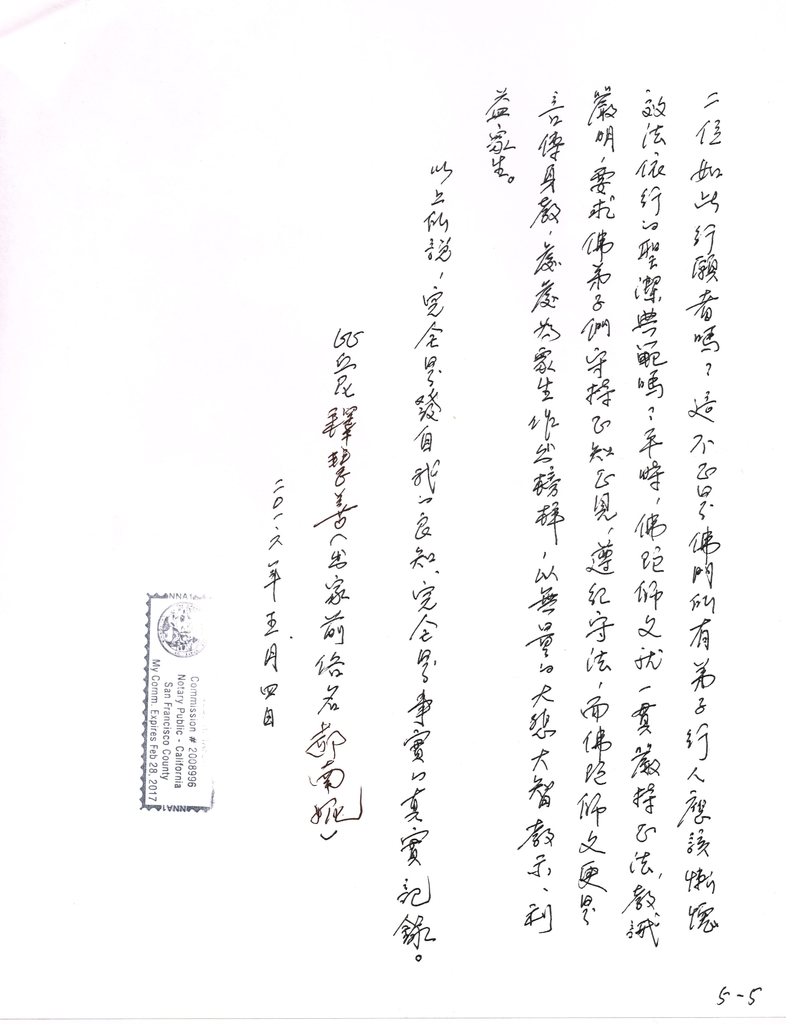 二位如此行願者嗎？這不正是佛門所有弟子行人應該慚愧
效法依行的聖潔典範嗎？平時，佛陀師父就一貫嚴持正法，教誡
嚴明，要求佛弟子們守持正知正見，遵紀守法，而佛陀師父更是
言傳身教，處處為眾生作出榜樣，以無量的大悲大智教示、利
益眾生。
以上所說，完全是發自我的良知、完全是事實的真實記錄。
比丘尼釋慧善（出家前俗名郝南妮）
二〇一六年五月四日
ANNA1
Commission # 2008996
Notary Public - California
San Francisco County
My Comm. Expires Feb 28, 2017
ANNA1
5-5